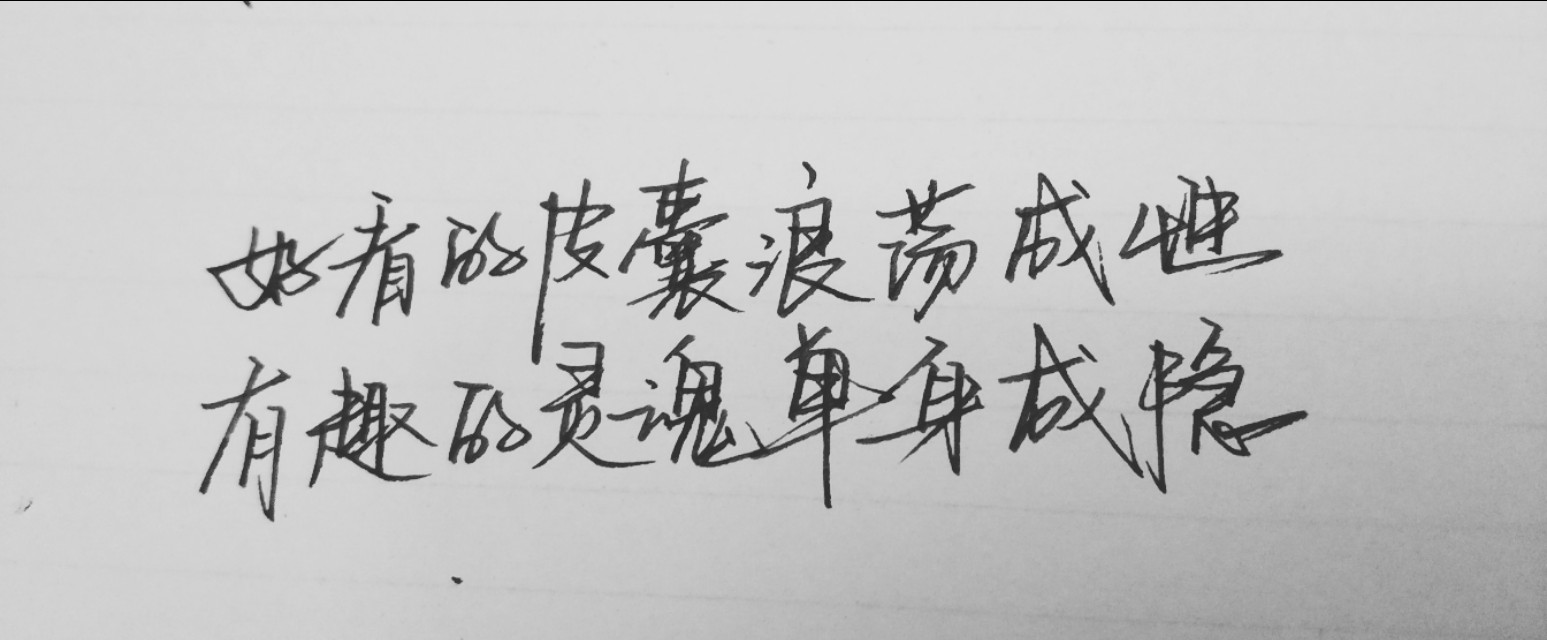 好看的皮囊浪荡成性
有趣的灵魂单身成隐